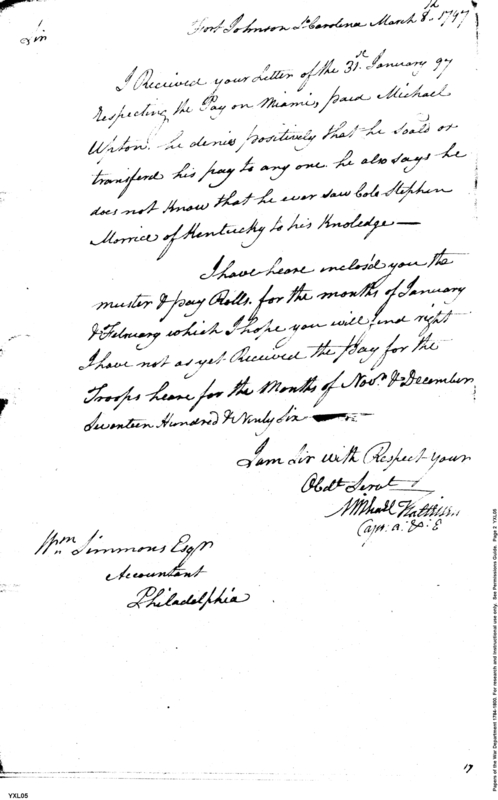 Fort Johnson So. Carolina March 8th 1797
Sir
I Recieved your Letter of the 31st January 97
Respecting the Pay on Miami, paid Michael
Upton. he denies positively that he soald or
transferd his pay to any one he also says he
does not Know that he ever saw Colo Stephen
Morrice of Kentucky to his Knoledge—
I have heare inclos'd you the
muster & pay Rolls. for the months of January
& February which I hope you will find right
I have not as yet Received the Pay for the
Troops heare for the Months of Novr & December
Seventeen Hundred & Ninty Six
I am Sir with Respect your
Obdt Servt
Capt: A: & E
Wm Simmons Esqr
Accountant
Philadelphia
17
YXL05
Papers of the War Department 1784-1800. For research and instructional use only. See Permissions Guide. Page 2 YXL05